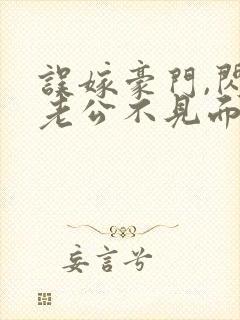 誤嫁豪門,閃
老公不見而
妄言兮